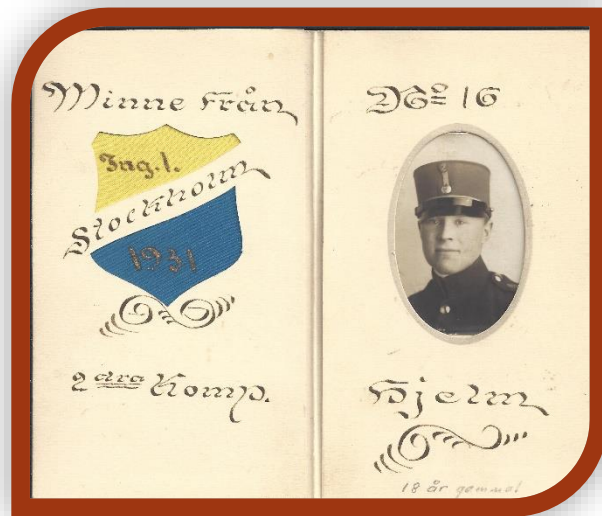 Minne från
Ing. 1.
Stockholm
1931
2 dra Komp.
No 16
Hjelm
18 år gammal